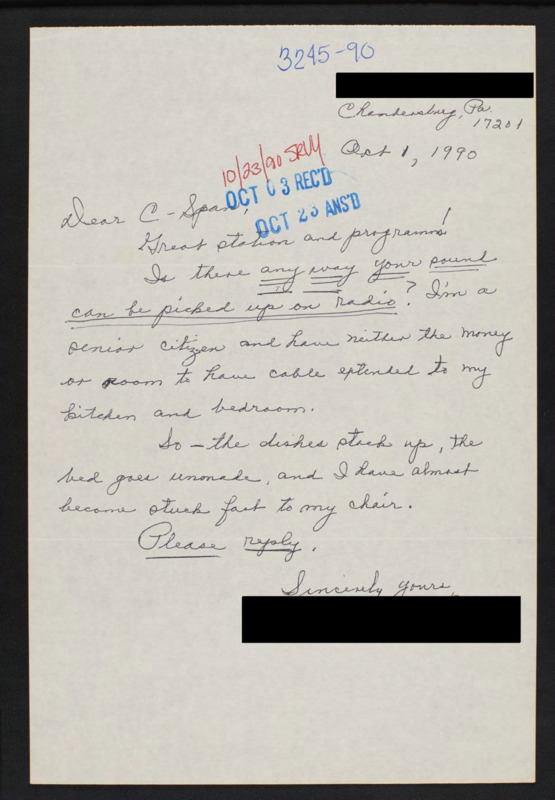 3245-90
Chambersburg, Pa.
17201
Oct 1, 1990
10/23/90 SRVM
OCT 03 REC'D
OCT 23 ANS'D
Dear C-Span,
Great station and programs!
Is there any way your sound
can be picked up on radio? I'm a
senior citizen and have neither the money
or room to have cable extended to my
kitchen and bedroom.
So — the dishes stack up, the
bed goes unmade, and I have almost
become stuck fast to my chair.
Please reply.
Sincerely yours,